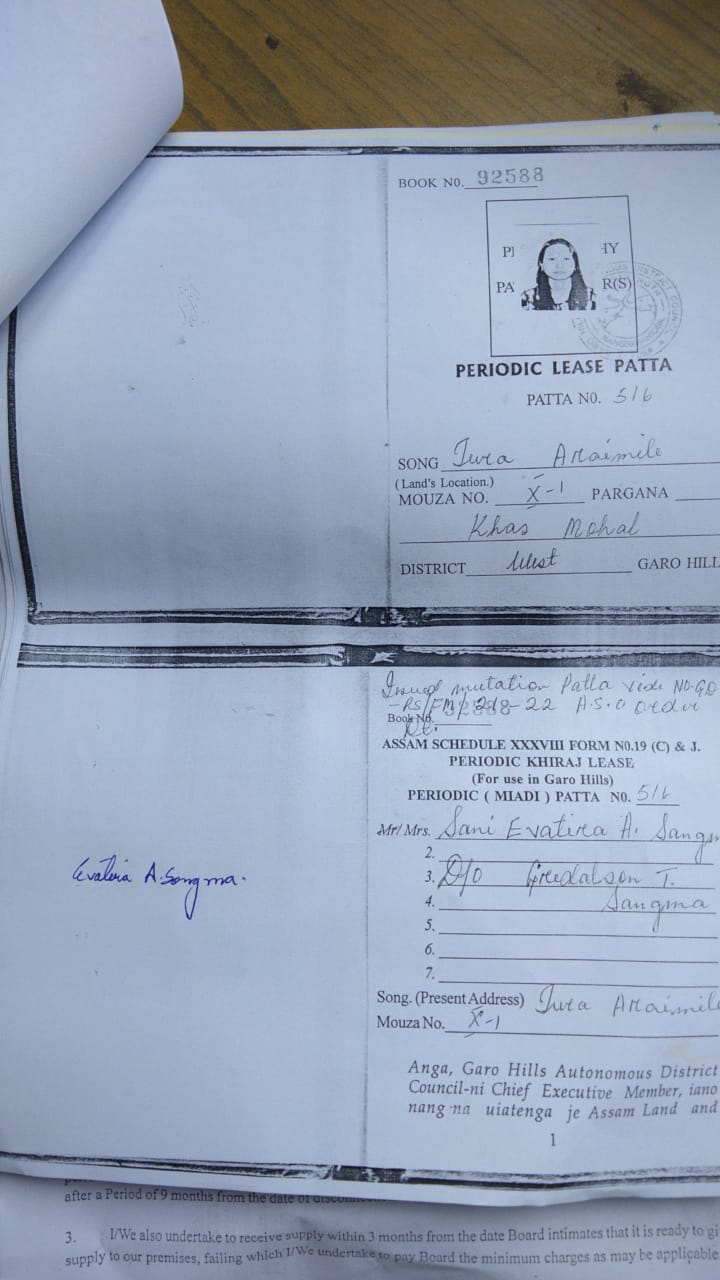 BOOK N0. 92588
PERIODIC LEASE PATTA
PATTA N0. 516
SONG Tura Araimile
(Land's Location.)
MOUZA NO. X-1 PARGANA
Khas Mohal
DISTRICT West GARO HILL
Issued mutation Patta vide NO. GD
A.S.O order
Book No.
Dt.
ASSAM SCHEDULE XXXVIII FORM N0.19 (C) & J.
PERIODIC KHIRAJ LEASE
(For use in Garo Hills)
PERIODIC ( MIADI ) PATTA N0. 516
Mr/ Mrs. Sani Evatira A. Sangm
2.
3. D/o Greedalson T.
4. Sangma
5.
6.
7.
Evatira A. Sangma.
Song. (Present Address) Tura Araimile
Mouza No. X-1
Anga, Garo Hills Autonomous District
Council-ni Chief Executive Member, iano
nang·na uiatenga je Assam Land and
1
after a Period of 9 months from the date of
3. I/We also undertake to receive supply within 3 months from the date Board intimates that it is ready to gi
supply to our premises, failing which I/We undertake to pay Board the minimum charges as may be applicable